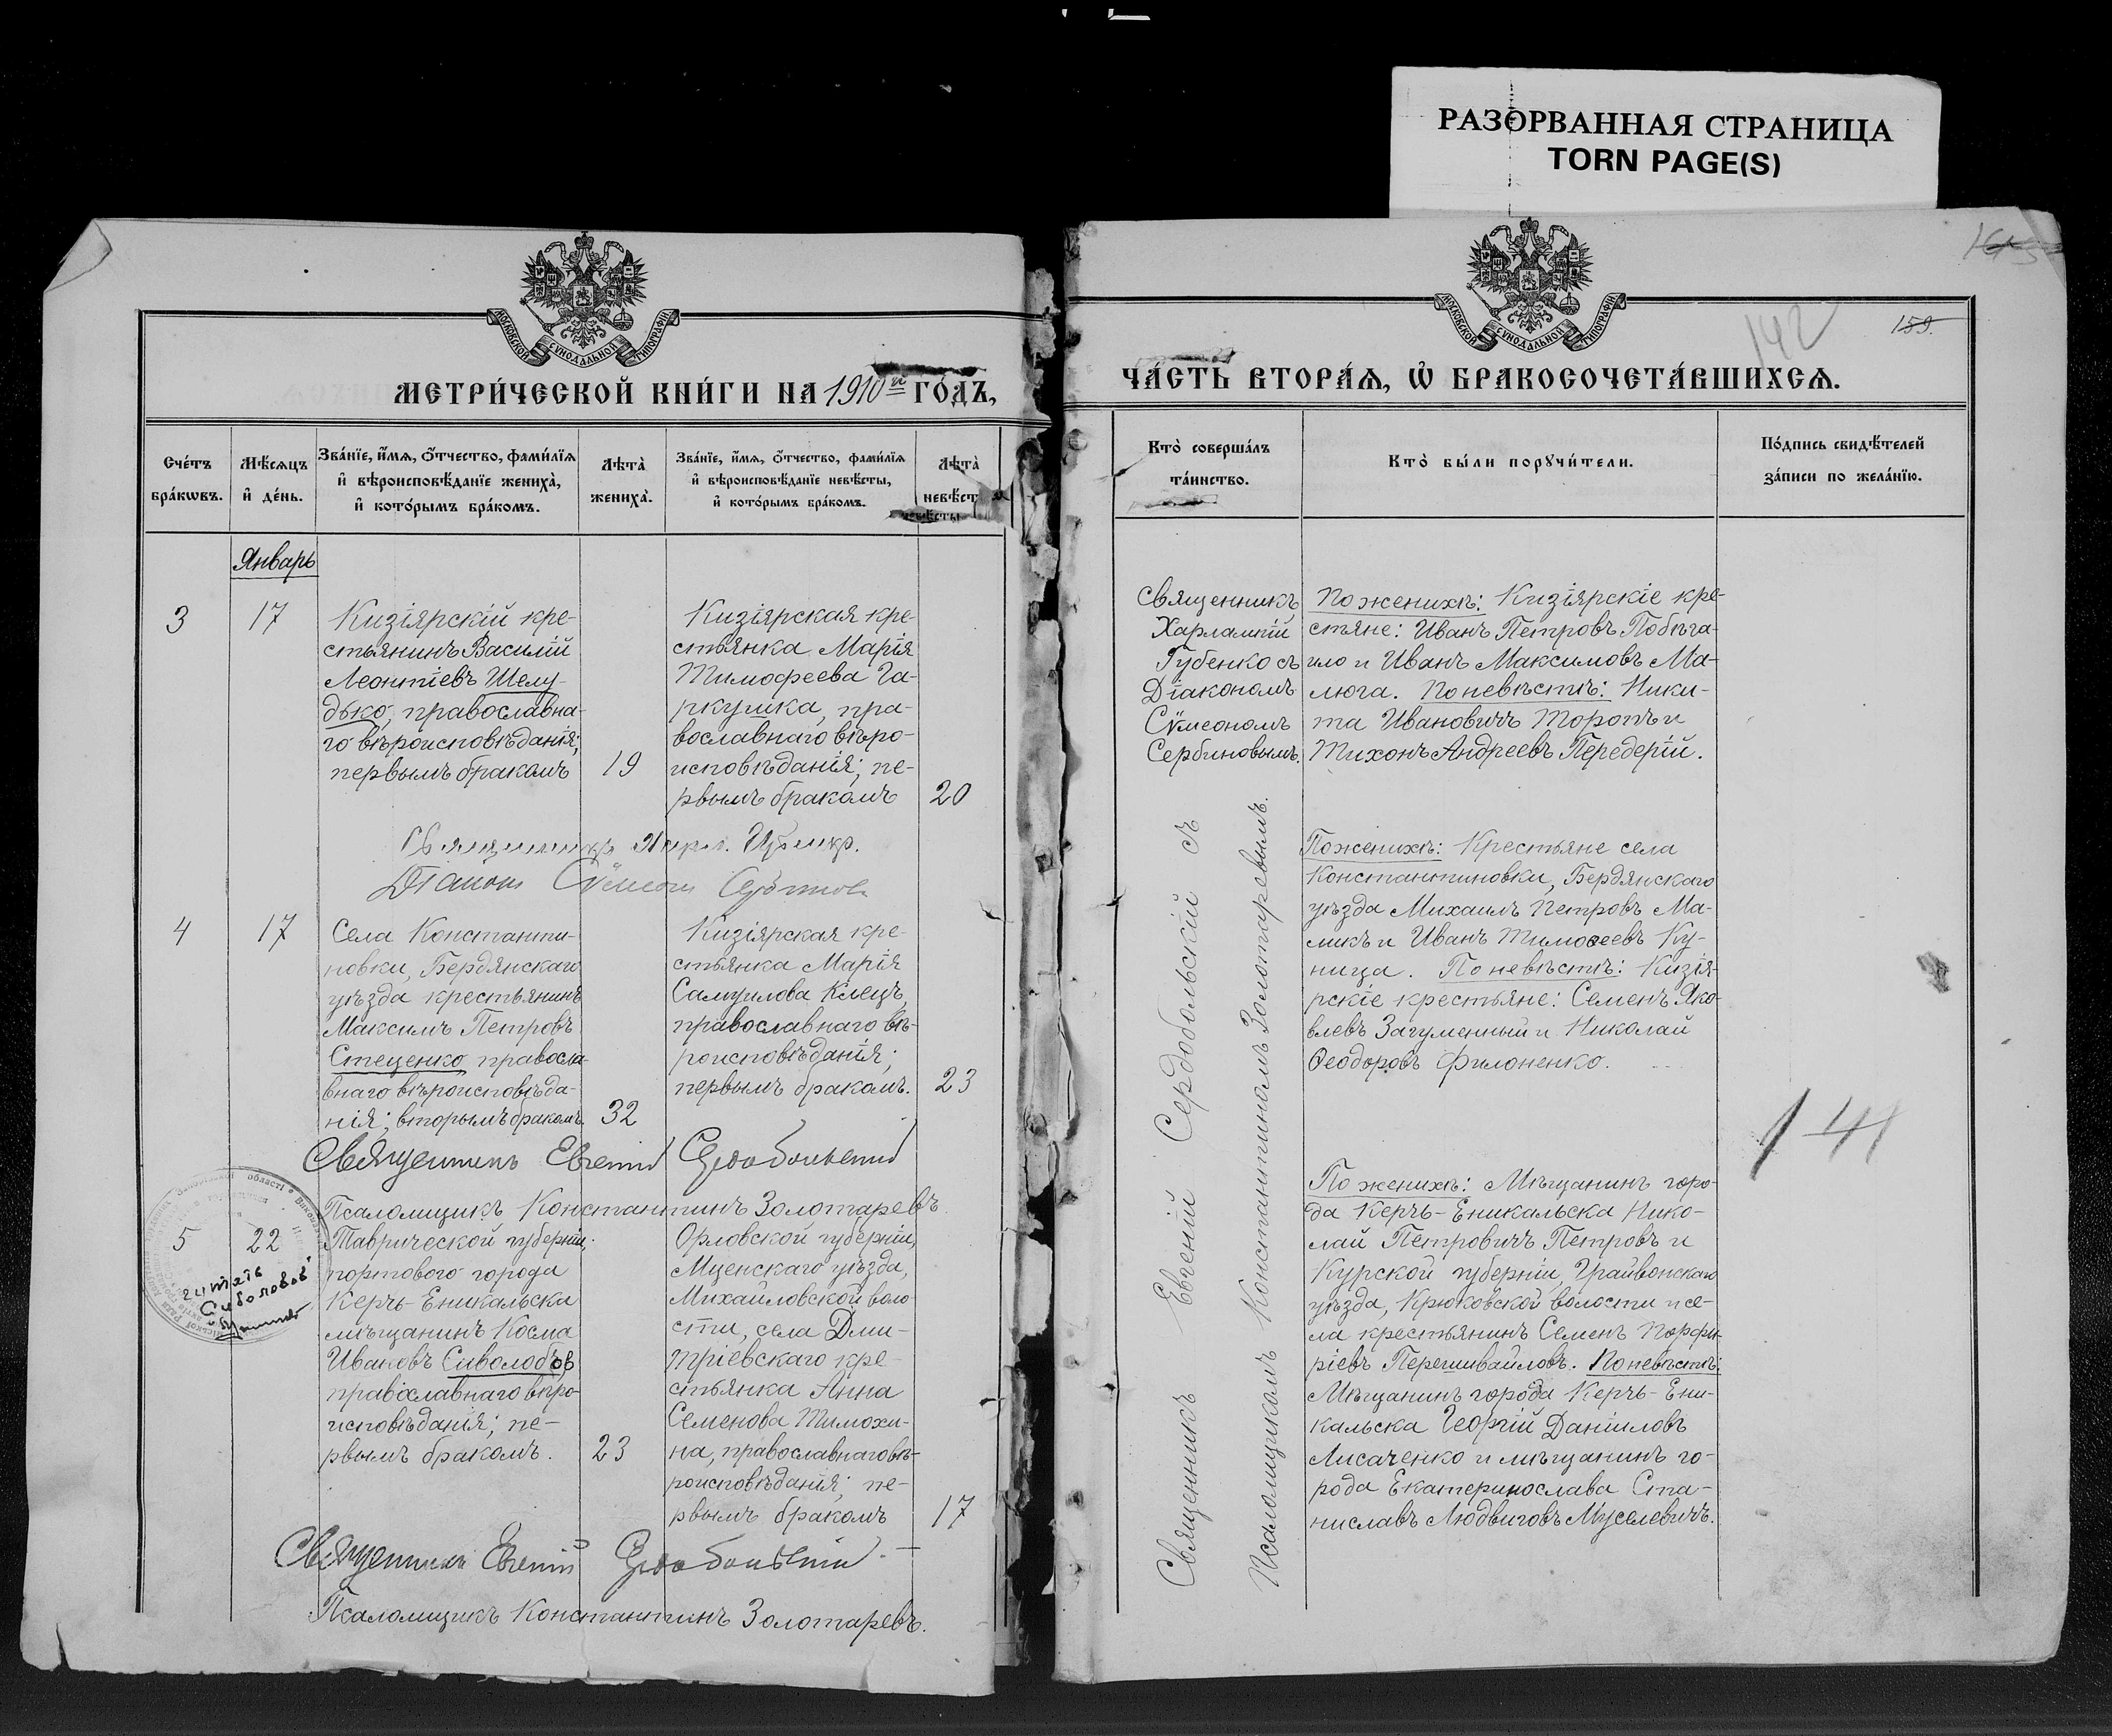 РАЗОРВАННАЯ СТРАНИЦА
TORN PAGE(S)
МОСКОВСКОЙ СѴНОДАЛЬНОЙ ТИПОГРАФІИ
МЕТРИ́ЧЕСКОЙ КНИ́ГИ НА 1910й ГО́ДЪ,
Сче́тъ
бра́кѡвъ.
Мѣ́сѧцъ
и҆ де́нь.
Зва́нїе, и҆́мѧ, ѻ҆́тчество, фами́лїѧ
и҆ вѣроисповѣ́данїе жениха̀,
и҆ кото́рымъ бра́комъ.
Лѣта̀
жениха̀.
Зва́нїе, и҆́мѧ, ѻ҆́тчество, фами́лїѧ
и҆ вѣроисповѣ́данїе невѣ́сты,
и҆ кото́рымъ бра́комъ.
Лѣта̀
невѣ́ст
невѣ́сты
Январь
3
17
Кизіярскій кре-
стьянинъ Василій
Леонтіевъ Шелу-
дько, православна-
го вѣроисповѣданія;
первымъ бракомъ
19
Кизіярская кре-
стьянка Марія
Тимофеева Га-
ркушка, пра-
вославнаго вѣро-
исповѣданія; пе-
рвымъ бракомъ
20
Діаконъ Сѵмеонъ
4
17
Села Константи-
новки, Бердянскаго
уѣзда крестьянинъ
Максимъ Петровъ
Стеценко, правосла-
внаго вѣроисповѣда-
нія; вторымъ бракомъ.
32
Кизіярская кре-
стьянка Марія
Самуилова Клецъ,
православнаго вѣ-
роисповѣданія;
первымъ бракомъ.
23
Священникъ Евгеній Сердобольскій
Псаломщикъ Константинъ Золотаревъ.
5
22
Таврической губерніи,
портового города
Керчь-Еникальска
мѣщанинъ Косма
Ивановъ Сиволобов
православнаго вѣро-
исповѣданія; пе-
рвымъ бракомъ.
23
Орловской губерніи,
Мценскаго уѣзда,
Михайловской воло-
сти, села Дми-
тріевскаго кре-
стьянка Анна
Семенова Тимохи-
на, православнаго вѣ-
роисповѣданія; пе-
рвымъ бракомъ
17
читать
Сиволобов
Священникъ Евгеній Сердобольскій.
Псаломщикъ Константинъ Золотаревъ.
159.
142
МОСКОВСКОЙ СѴНОДАЛЬНОЙ ТИПОГРАФІИ
ЧА́СТЬ ВТОРА́Ѧ, Ѡ҆ БРАКОСОЧЕТА́ВШИХСѦ.
Кто̀ соверша́лъ
та́инство.
Кто̀ бы́ли порꙋчи́тели.
По́дпись свидѣ́телей
за́писи по жела́нїю.
Священникъ
Харлампій
Губенко съ
Діакономъ
Сѵмеономъ
Сербиновымъ.
По женихѣ: Кизіярскіе кре-
стьяне: Иванъ Петровъ Побѣга-
ило и Иванъ Максимовъ Ма-
люга. По невѣстѣ: Ники-
та Ивановичъ Торопъ и
Тихонъ Андреевъ Передерій.
По женихѣ: Крестьяне села
Константиновки, Бердянскаго
уѣзда Михаилъ Петровъ Ма-
ликъ и Иванъ Тимоѳеевъ Ку-
ница. По невѣстѣ: Кизія-
рскіе крестьяне: Семенъ Яко-
влевъ Загуменный и Николай
Ѳеодоровъ Филоненко.
141
По женихѣ: Мѣщанинъ горо-
да Керчь-Еникальска Нико-
лай Петровичъ Петровъ и
Курской губерніи, Грайвонскаго
уѣзда, Крюковской волости и се-
ла крестьянинъ Семенъ Порфи-
ріевъ Перешивайловъ. По невѣстѣ:
Мѣщанинъ города Керчь-Ени-
кальска Георгій Даніиловъ
Лисаченко и мѣщанинъ го-
рода Екатеринослава Ста-
ниславъ Людвиговъ Муселевичъ.
Священникъ Евгеній Сердобольскій съ
Псаломщикомъ Константиномъ Золотаревымъ.